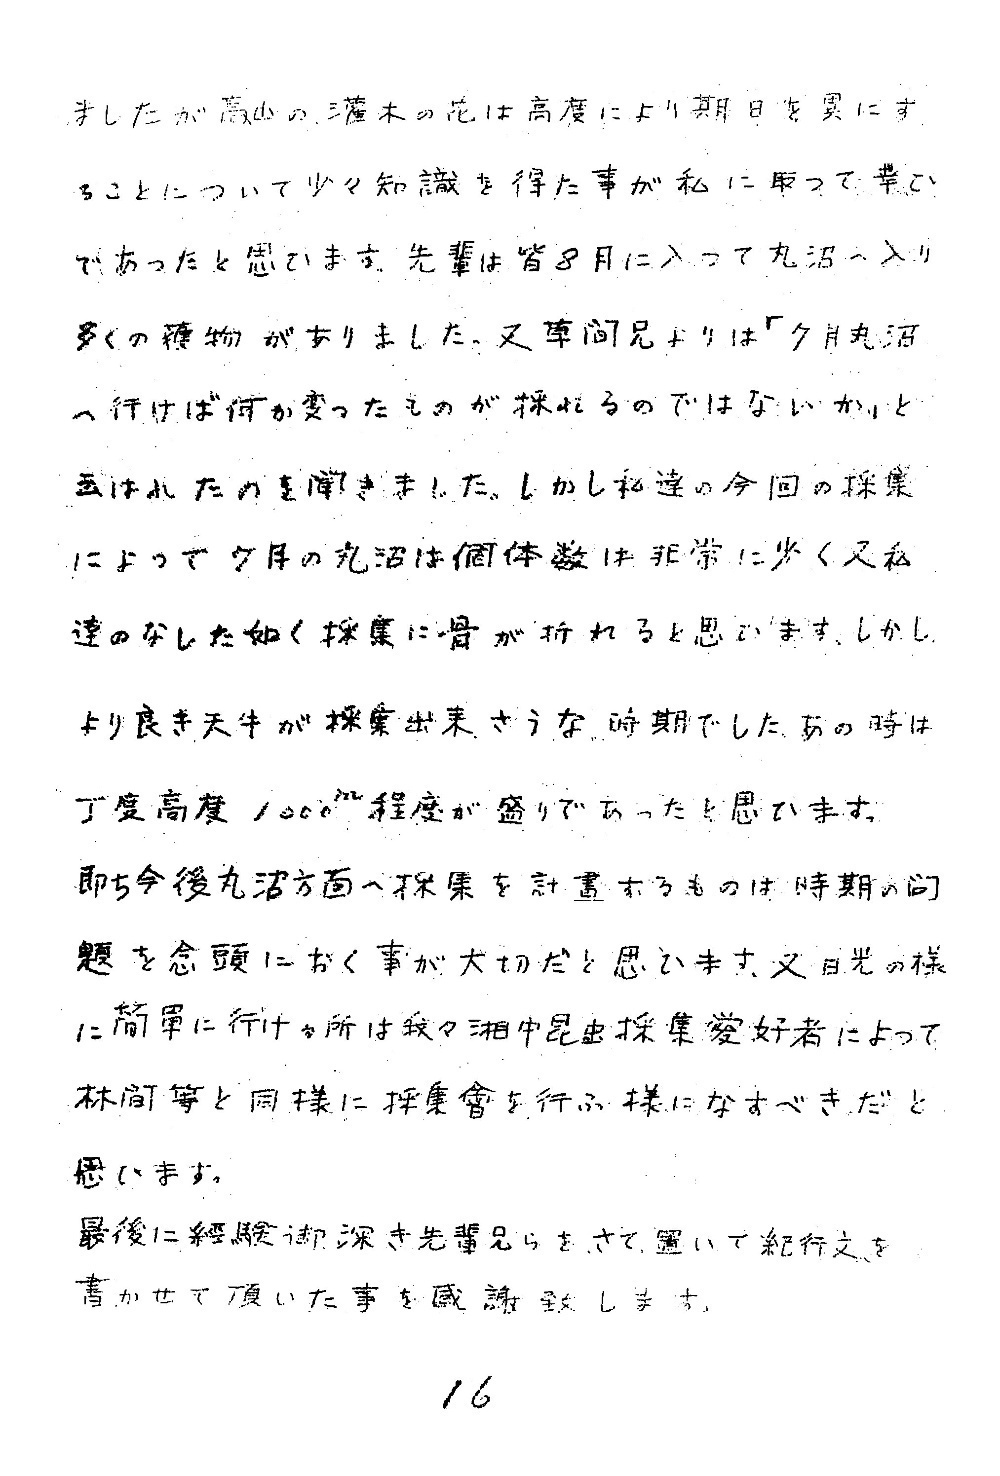 ましたが高山の灌木の花は高度により期日を異にす
ることについて少々知識を得た事が私に取って幸ひ
であったと思ひます。先輩は皆8月に入って丸沼へ入り
多くの穫物がありました。又草間兄よりは「7月丸沼
へ行けば何か変ったものが採れるのではないか」と
云はれたのを聞きました。しかし私達の今回の採集
によって7月の丸沼は個体数は非常に少く又私
達のなした如く採集に骨が折れると思ひます。しかし
より良き天牛が採集出来さうな時期でした。あの時は
丁度高度1000m程度が盛りであったと思ひます。
即ち今後丸沼方面へ採集を計畫するものは時期の問
題を念頭におく事が大切だと思ひます。又日光の様
に簡單に行ける所は我々湘中昆虫採集愛好者によって
林間等と同様に採集會を行ふ様になすべきだと
思います。
最後に経験御深き先輩兄らをさて置いて紀行文を
書かせて頂いた事を感謝致します。
16